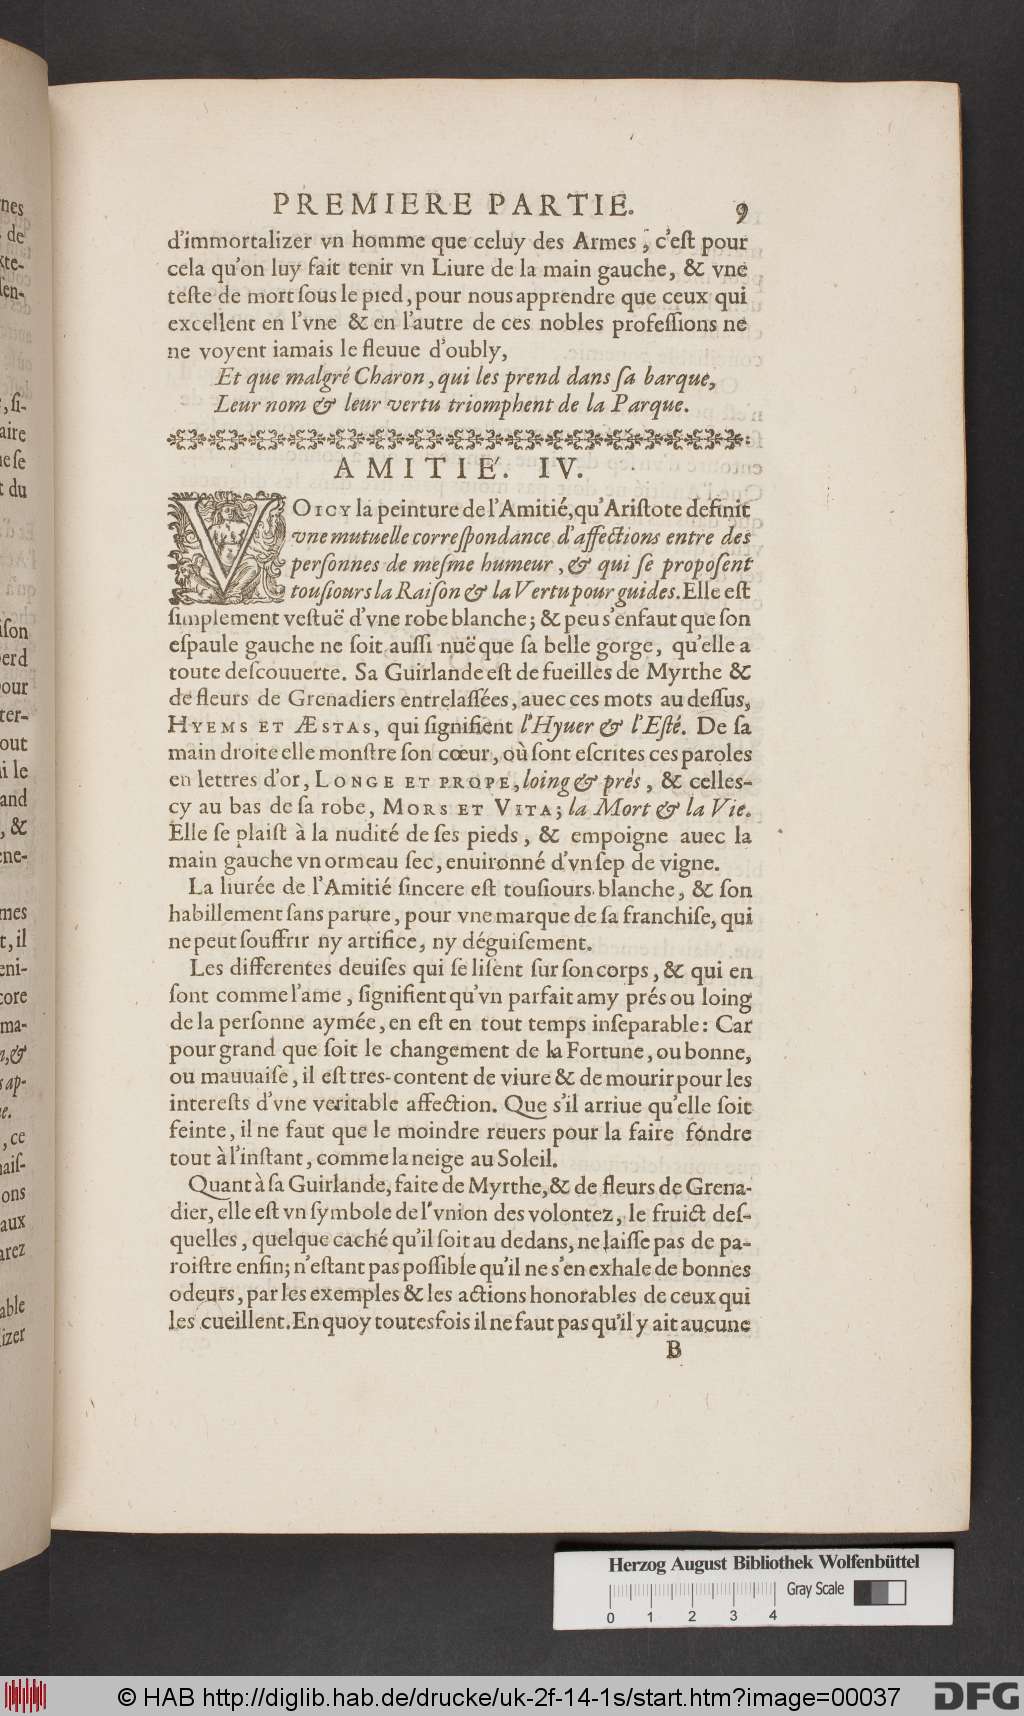 PREMIERE PARTIE. 9
d'immortalizer vn homme que celuy des Armes, c'eſt pour
cela qu'on luy fait tenir vn Liure de la main gauche, & vne
teſte de mort ſous le pied, pour nous apprendre que ceux qui
excellent en l'vne & en l'autre de ces nobles profeſſions ne
ne voyent iamais le fleuue d'oubly,
Et que malgré Charon, qui les prend dans ſa barque,
Leur nom & leur vertu triomphent de la Parque.
AMITIÉ. IV.
VOICY la peinture de l'Amitié, qu'Ariſtote definit
vne mutuelle correſpondance d'affections entre des
perſonnes de meſme humeur, & qui ſe propoſent
touſiours la Raiſon & la Vertu pour guides. Elle eſt
ſimplement veſtuë d'vne robe blanche; & peu s'enfaut que ſon
eſpaule gauche ne ſoit auſſi nuë que ſa belle gorge, qu'elle a
toute deſcouuerte. Sa Guirlande eſt de fueilles de Myrthe &
de fleurs de Grenadiers entrelaſſées, auec ces mots au deſſus,
HYEMS ET ÆSTAS, qui ſignifient l'Hyuer & l'Eſté. De ſa
main droite elle monſtre ſon cœur, où ſont eſcrites ces paroles
en lettres d'or, LONGE ET PROPE, loing & prés, & celles-
cy au bas de ſa robe, MORS ET VITA; la Mort & la Vie.
Elle ſe plaiſt à la nudité de ſes pieds, & empoigne auec la
main gauche vn ormeau ſec, enuironné d'vn ſep de vigne.
La liurée de l'Amitié ſincere eſt touſiours blanche, & ſon
habillement ſans parure, pour vne marque de ſa franchiſe, qui
ne peut ſouffrir ny artifice, ny déguiſement.
Les differentes deuiſes qui ſe liſent ſur ſon corps, & qui en
ſont comme l'ame, ſignifient qu'vn parfait amy prés ou loing
de la perſonne aymée, en eſt en tout temps inſeparable: Car
pour grand que ſoit le changement de la Fortune, ou bonne,
ou mauuaiſe, il eſt tres-content de viure & de mourir pour les
intereſts d'vne veritable affection. Que s'il arriue qu'elle ſoit
feinte, il ne faut que le moindre reuers pour la faire fondre
tout à l'inſtant, comme la neige au Soleil.
Quant à ſa Guirlande, faite de Myrthe, & de fleurs de Grena-
dier, elle eſt vn ſymbole de l'vnion des volontez, le fruict deſ-
quelles, quelque caché qu'il ſoit au dedans, ne laiſſe pas de pa-
roiſtre enfin; n'eſtant pas poſſible qu'il ne s'en exhale de bonnes
odeurs, par les exemples & les actions honorables de ceux qui
les cueillent. En quoy toutesfois il ne faut pas qu'il y ait aucune
B
Herzog August Bibliothek Wolfenbüttel
Gray Scale
0 1 2 3 4
© HAB http://diglib.hab.de/drucke/uk-2f-14-1s/start.htm?image=00037
DFG